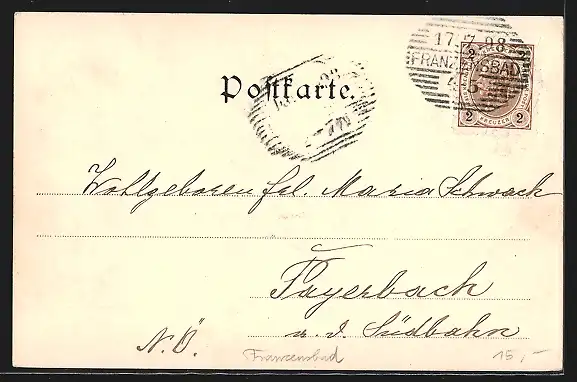 17.7.98
FRANZENSBAD
4-5
2 KREUZER 2
Postkarte.
Wohlgeboren frl. Maria Schwack
Payerbach
a. d. Südbahn
N.Ö.
Franzensbad
15,-